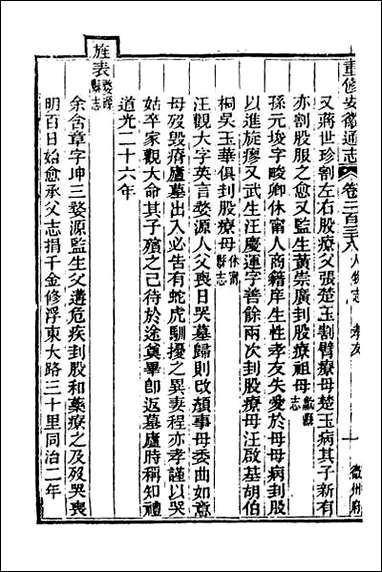 重修安徽通志 卷二百三十八 人物志 孝友 十 徽州府
又蔣世珍割左右股療父張楚玉割臂療母楚玉病其子新有
亦割股服之愈又監生黃崇廣刲股療祖母歙縣志
孫元埈字畯卿休甯人商籍庠生性孝友失愛於母母病刲股
以進旋瘳又武生汪慶運字善餘兩次刲股療母汪啟基胡伯
桐吳玉華俱刲股療母休甯縣志
汪觀大字英言婺源人父喪日哭墓歸則改頮事母委曲如意
母歿毀瘠廬墓出入必告有蛇虎馴擾之異妻程亦孝謹以哭
姑卒家觀大命其子殯之己待於途奠畢卽返墓廬時稱知禮
道光二十六年
旌表婺源縣志
余含章字坤三婺源監生父遘危疾刲股和藥療之及歿哭喪
明百日始愈承父志捐千金修浮東大路三十里同治二年